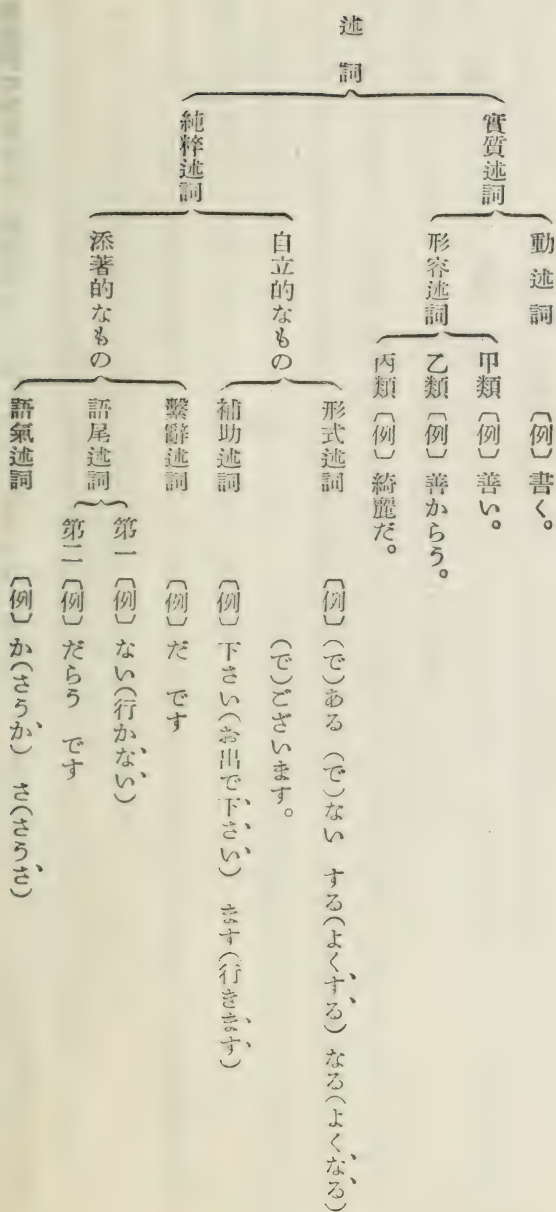 述詞
實質述詞
動述詞 〔例〕 書く。
形容述詞
甲類 〔例〕 善い。
乙類 〔例〕 善からう。
丙類 〔例〕 綺麗だ。
純粹述詞
自立的なもの
形式述詞 〔例〕 (で)ある (で)ない する(よくする) なる(よくなる)
(で)ございます。
補助述詞 〔例〕 下さい(お出で下さい) ます(行きます)
添著的なもの
繫辭述詞 〔例〕 だ です
語尾述詞
第一 〔例〕 ない(行かない)
第二 〔例〕 だらう です
語氣述詞 〔例〕 か(さうか) さ(さうさ)